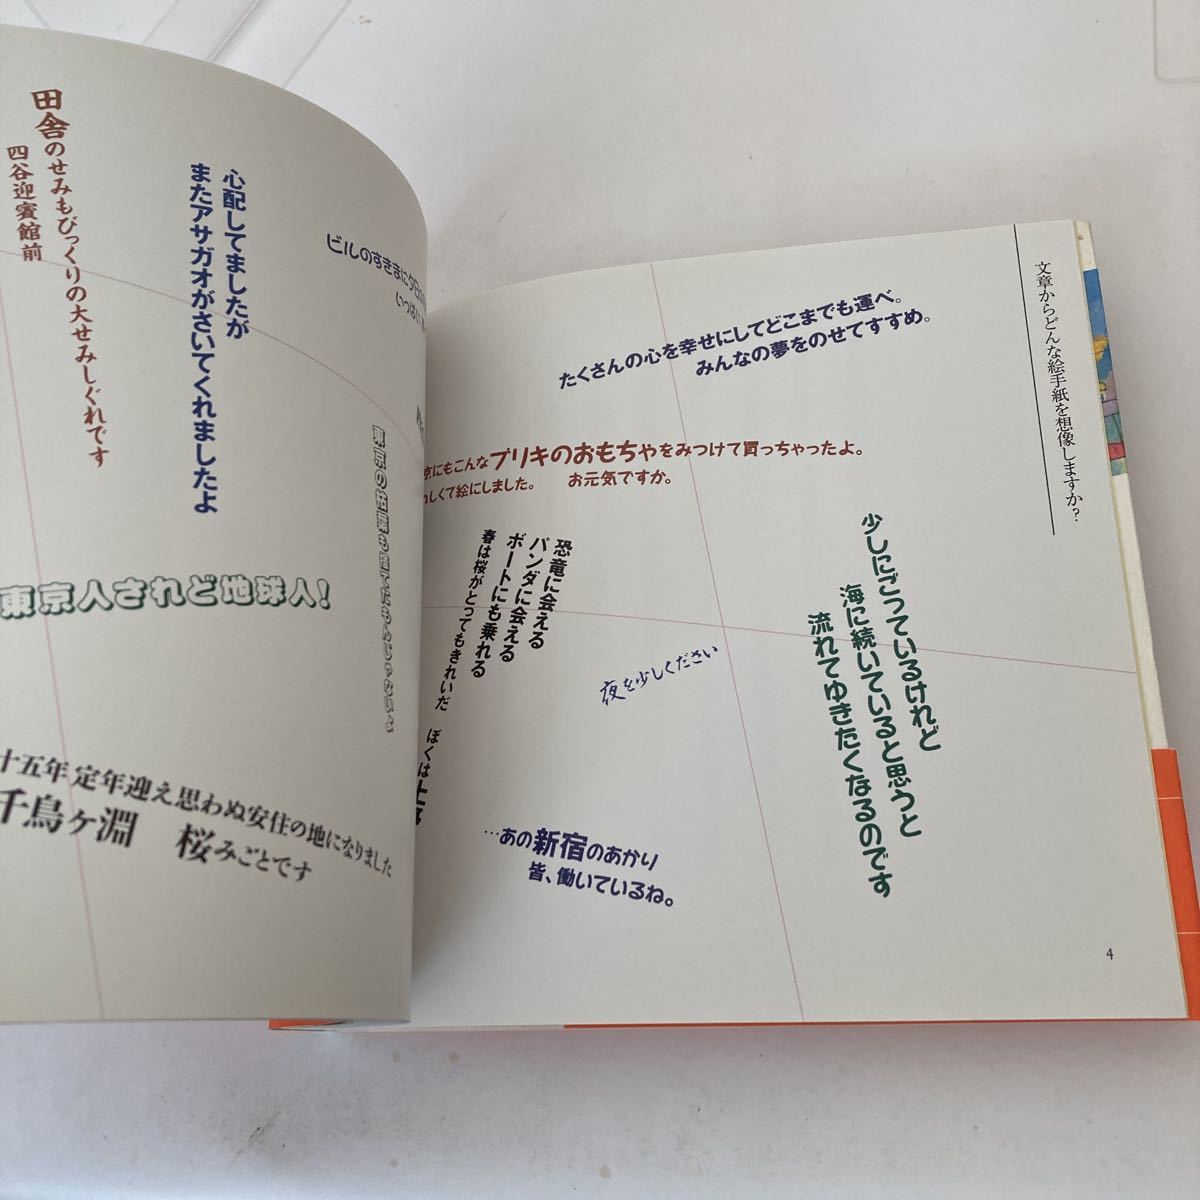 文章からどんな絵手紙を想像しますか?
たくさんの心を幸せにしてどこまでも運べ。
みんなの夢をのせてすすめ。
京にもこんなブリキのおもちゃをみつけて買っちゃったよ。
れしくて絵にしました。 お元気ですか。
少しにごっているけれど
海に続いていると思うと
流れてゆきたくなるのです
恐竜に会える
パンダに会える
ボートにも乗れる
春は桜がとってもきれいだ ぼくは上
夜を少しください
…あの新宿のあかり
皆、働いているね。
4
ビルのすきまに夕日
いっぱい
心配してましたが
またアサガオがさいてくれましたよ
田舎のせみもびっくりの大せみしぐれです
四谷迎賓館前
東京の枯葉も捨てたもんじゃないよ
東京人されど地球人!
十五年 定年迎え思わぬ安住の地になりました
千鳥ヶ淵 桜みごとです